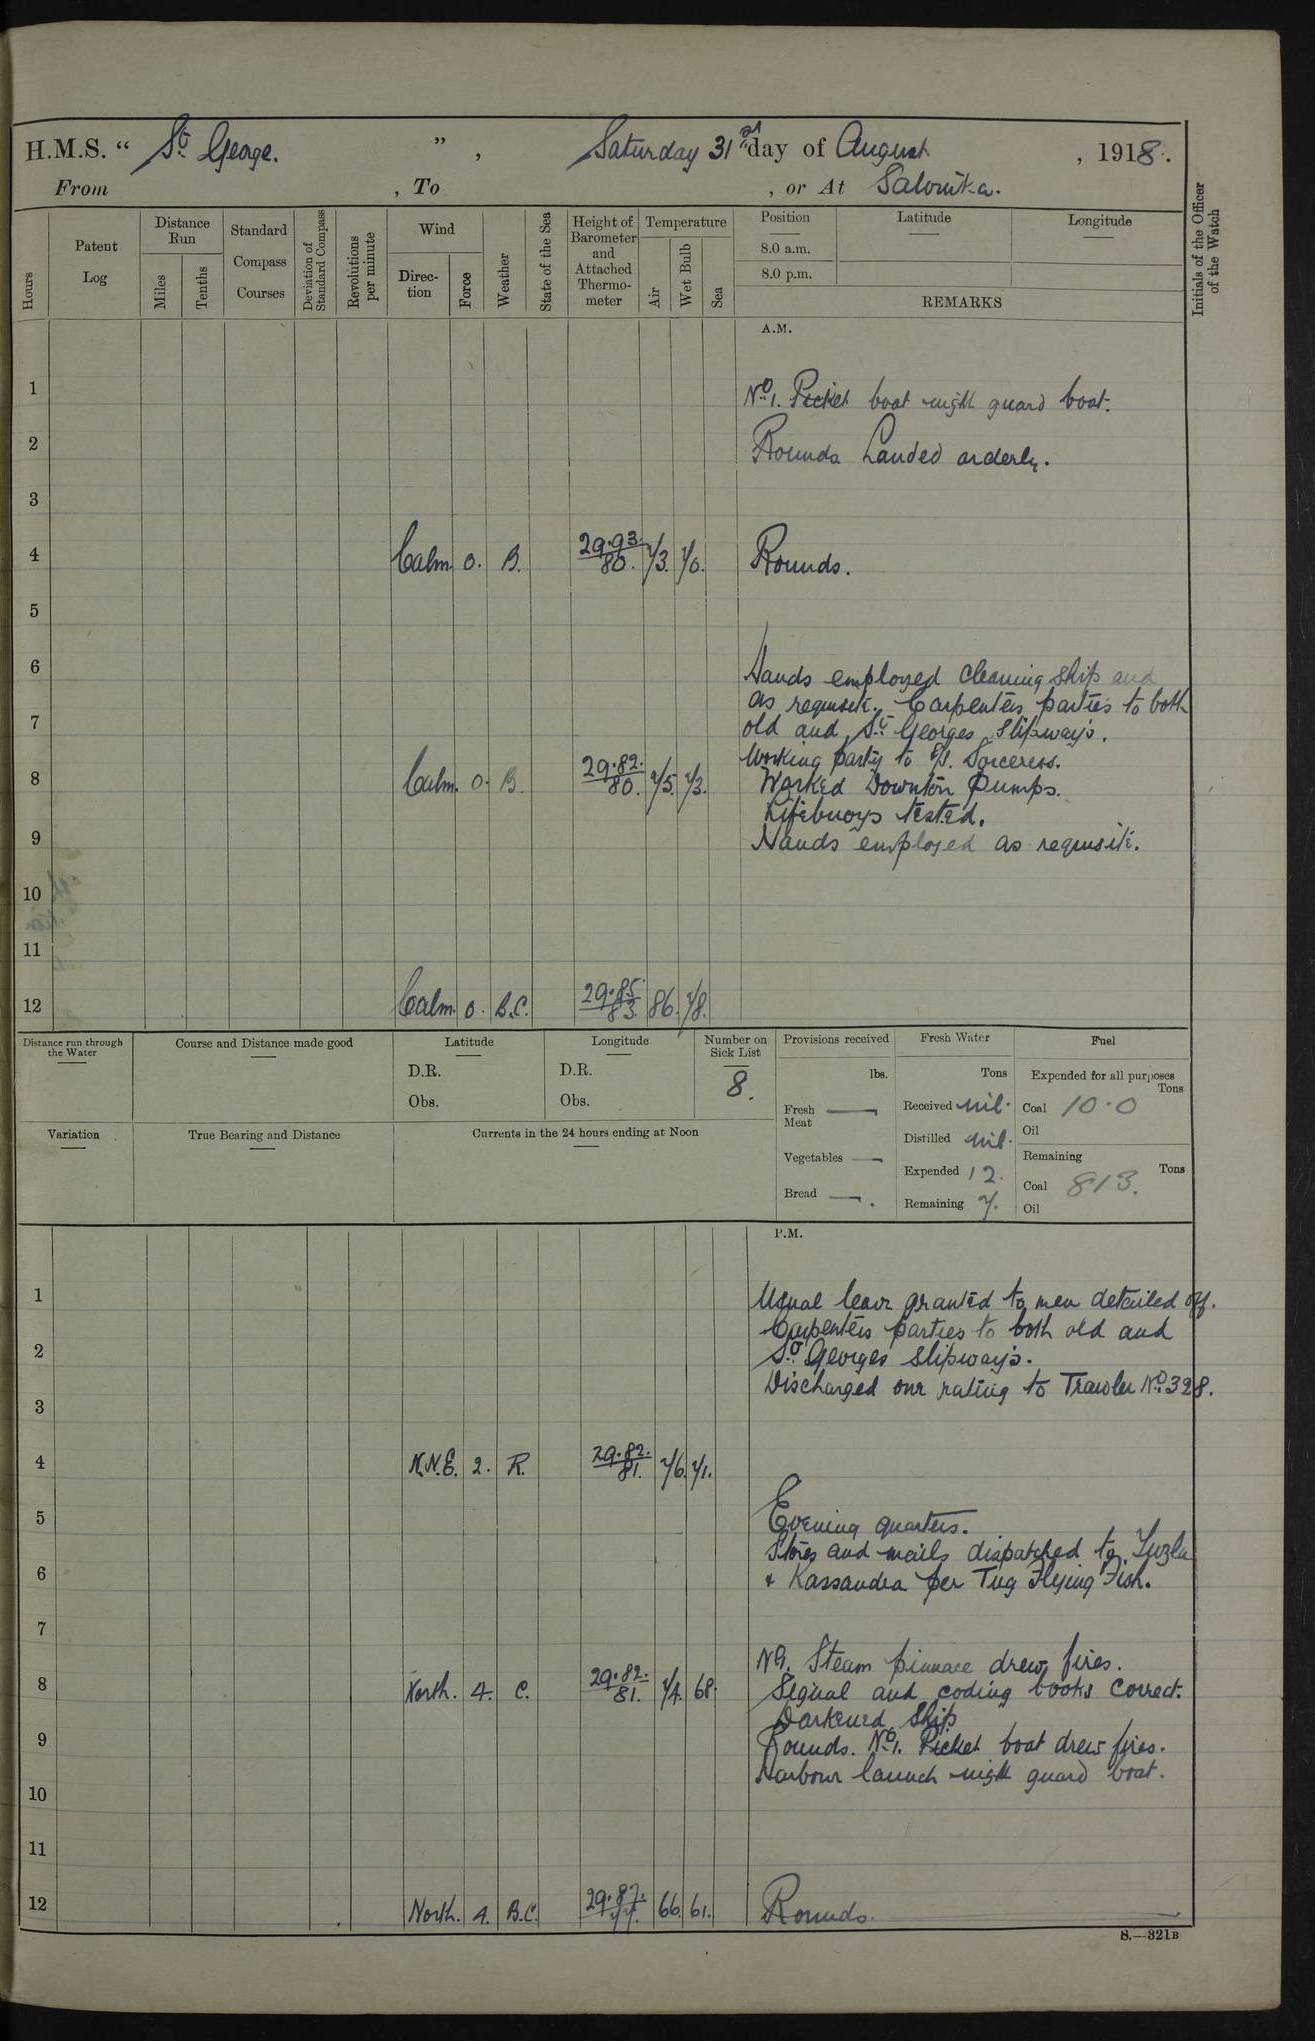 H.M.S. “ St George. ” , Saturday 31st day of August , 1918.
From , To , or At Salonika.
Hours
Patent Log
Distance Run
Miles
Tenths
Standard Compass Courses
Deviation of Standard Compass
Revolutions per minute
Wind
Direction
Force
Weather
State of the Sea
Height of Barometer and Attached Thermometer
Temperature
Air
Wet Bulb
Sea
Position
8.0 a.m.
8.0 p.m.
Latitude
Longitude
REMARKS
Initials of the Officer of the Watch
A.M.
1 No 1. Picket boat night guard boat.
2 Rounds Landed orderly.
3
4 Calm. 0. B. 29.93. 80. 73. 70. Rounds.
5
6 Hands employed cleaning ship and
as requisite. Carpenters parties to both
7 old and St Georges Slipways.
Working party to S/S. Sorceress.
8 Calm. 0. B. 29.82. 80. 75. 73. Worked Downton Pumps.
Lifebuoys tested.
9 Hands employed as requisite.
10
11
12 Calm. 0. B.C. 29.85. 83. 86. 78.
Distance run through the Water
Course and Distance made good
Latitude
D.R.
Obs.
Longitude
D.R.
Obs.
Number on Sick List
8.
Provisions received
lbs.
Fresh Meat —
Vegetables —
Bread — .
Fresh Water
Tons
Received nil.
Distilled nil.
Expended 12.
Remaining 7.
Fuel
Expended for all purposes
Tons
Coal 10.0
Oil
Remaining
Tons
Coal 813.
Oil
Variation
True Bearing and Distance
Currents in the 24 hours ending at Noon
P.M.
1 Usual leave granted to men detailed off.
Carpenters parties to both old and
2 St. Georges slipways.
Discharged one rating to Trawler No 328.
3
4 N.N.E. 2. R. 29.82. 81. 76. 71.
5 Evening quarters.
Stores and mails dispatched to Tuzla
6 & Kassandra per Tug Flying Fish.
7
Steam pinnace drew fires.
8 North. 4. C. 29.82. 81. 74. 68. Signal and coding books correct.
Darkened Ship
9 Rounds. No 1. Picket boat drew fires.
Harbour launch night guard boat.
10
11
12 North. 4. B.C. 29.87. 77. 66. 61. Rounds.
S.—321B